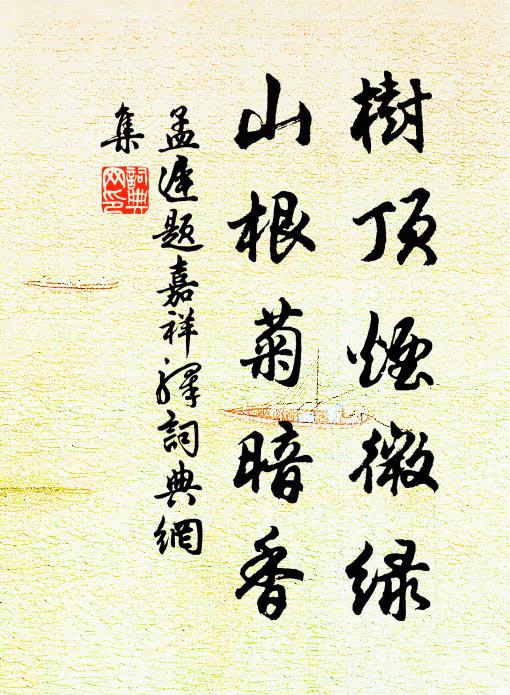 樹頂煙微绿
山根菊暗香
孟遲題嘉祥驛詞典網
集
詞典网印